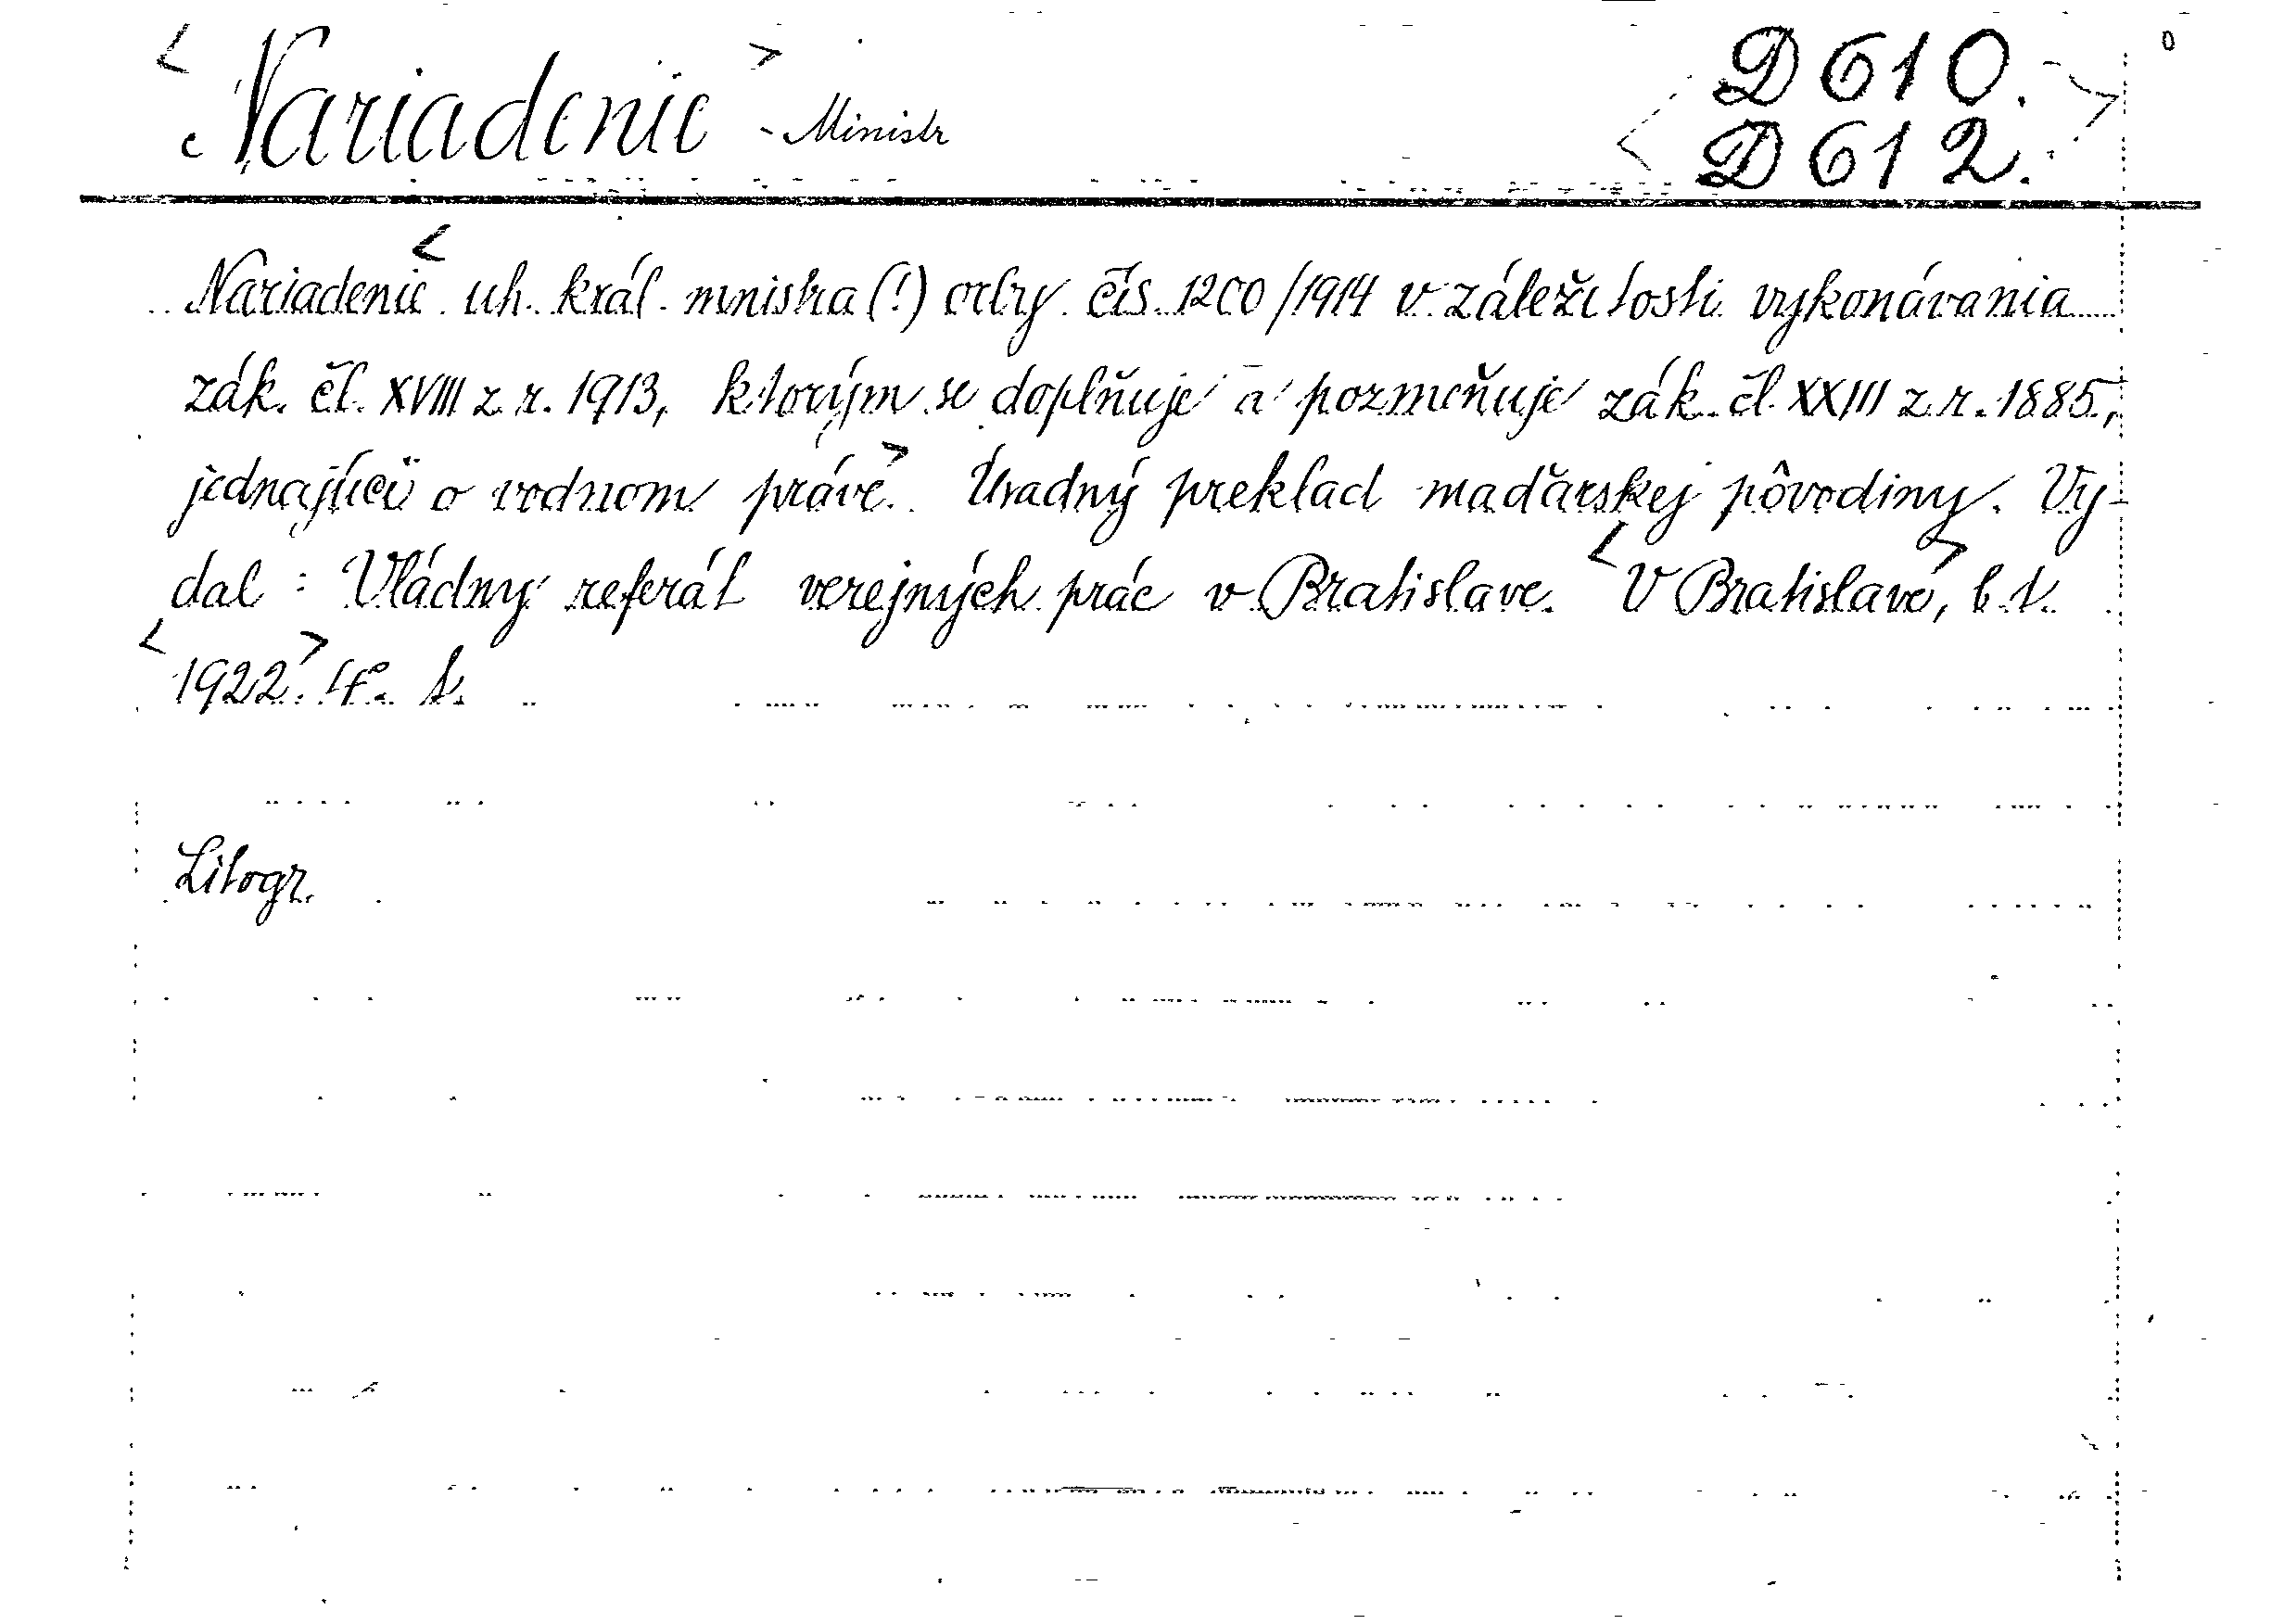 <Nariadenie> - Ministr
D 610.
<D 612.>
<Nariadenie uh. kráľ. mnistra (!) orby čís. 1200/1914 v záležitosti vykonávania
zák. čl. XVIII z r. 1913, ktorým se doplňuje a pozmeňuje zák. čl. XXIII z r. 1885,
jednajúci o vodnom práve>. Úradný preklad maďarskej pôvodiny. Vy-
dal: Vládny referát verejných prác v Bratislave. <V Bratislave>, b. t.
<1922>. 4°. s.
Litogr.